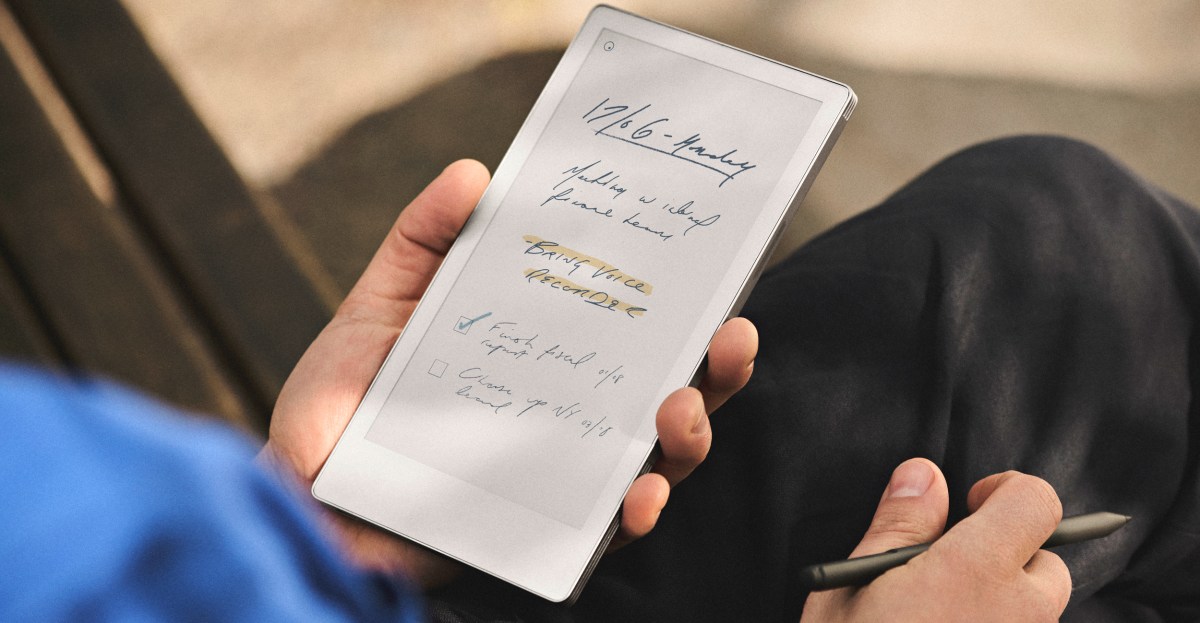 17/06 - Monday
Meeting w
finance team
BRING VOICE
RECORDER
Finish fiscal 01/18
report
Chase up NY 03/18
team